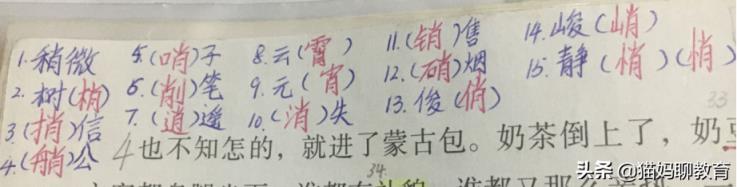 1.稍微
2.树(梢)
3.(捎)信
4.(艄)公
5.(哨)子
6.(削)笔
7.(逍)遥
8.云(霄)
9.元(宵)
10.(消)失
11.(销)售
12.(硝)烟
13.俊(俏)
14.峻(峭)
15.静(悄)(悄)
33
4也不知怎的，就进了蒙古包。奶茶倒上了，奶
34
头条 @猫妈聊教育